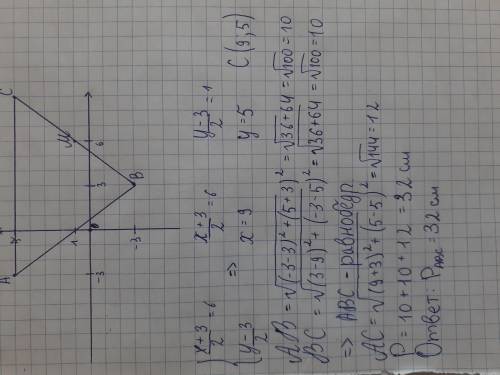 C
M
6
3
B
5
1
0
-3
A
-3
{ (x+3)/2 = 6   (x+3)/2 = 6   (y-3)/2 = 1
(y-3)/2   => x = 9   y = 5   C (9; 5)
AB = √((-3-3)² + (5+3)²) = √(36+64) = √100 = 10
BC = √((3-9)² + (-3-5)²) = √(36+64) = √100 = 10
=> ABC - равнобедр
AC = √((9+3)² + (5-5)²) = √144 = 12
P = 10 + 10 + 12 = 32 см
Ответ: P_ABC = 32 см